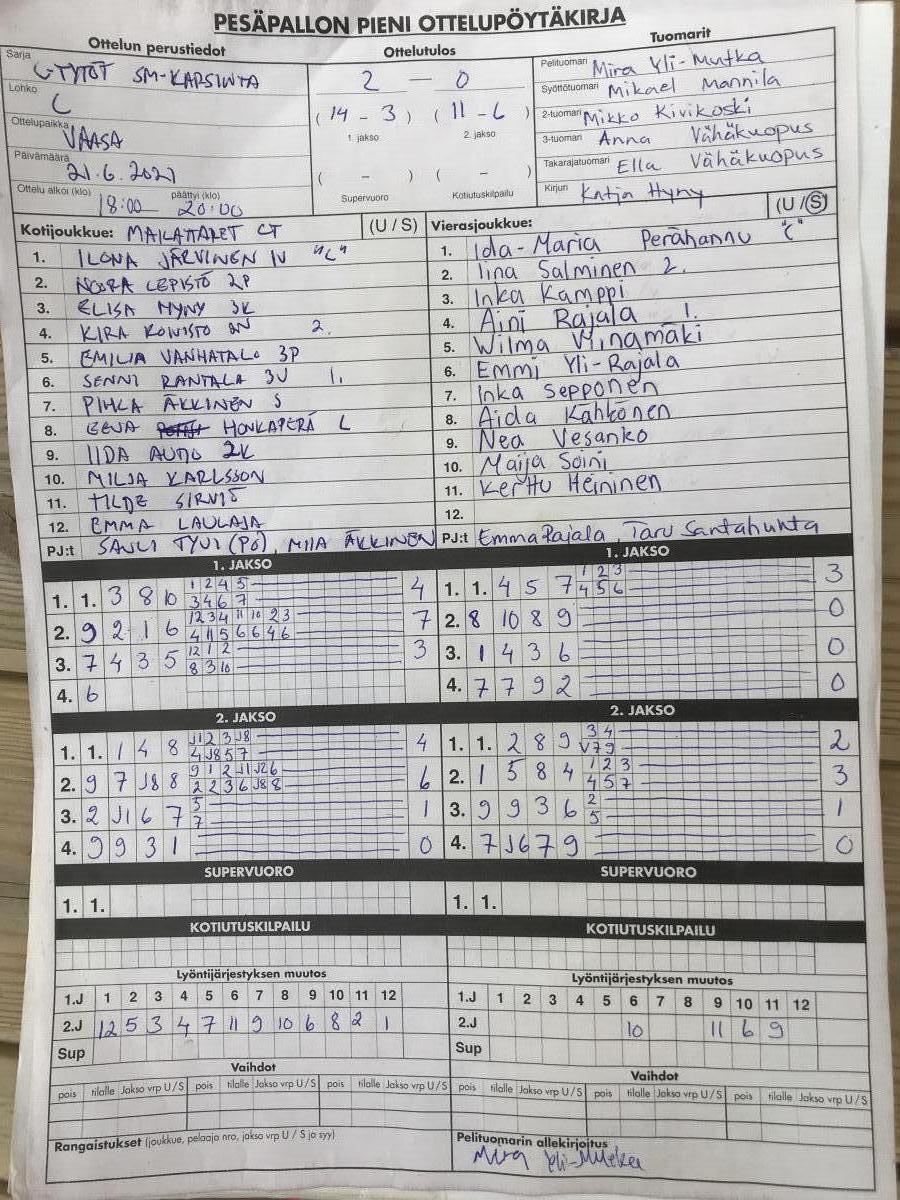 PESÄPALLON PIENI OTTELUPÖYTÄKIRJA
Ottelun perustiedot
Ottelutulos
Tuomarit
Sarja GTYTÖT SM-KARSINTA
Lohko C
Ottelupaikka VAASA
Päivämäärä 21.6.2021
Ottelu alkoi (klo) 18:00 päättyi (klo) 20:00
2 — 0
( 14 - 3 ) ( 11 - 6 )
1. jakso 2. jakso
( - ) ( - )
Supervuoro Kotiutuskilpailu
Pelituomari Mira Yli-Mutka
Syöttötuomari Mikael Mannila
2-tuomari Mikko Kivikoski
3-tuomari Anna Vähäkuopus
Takarajatuomari Ella Vähäkuopus
Kirjuri Katja Hyny
Kotijoukkue: MAILATTARET CT (U / S)
1. ILONA JÄRVINEN IV "C"
2. NOORA LEPISTÖ 2P
3. ELISA HYNY 3K
4. KIRA KONISTO 2.
5. EMILIA VANHATALO 3P
6. SENNI RANTALA 3V 1.
7. PIHLA ÄKKINEN S
8. EEVA HONKAPERÄ L
9. IIDA AUTIO 2K
10. MILJA KARLSSON
11. TILDE SIRVIÖ
12. EMMA LAULAJA
PJ:t SAULI TYVI (PJ), MIIA ÄKKINEN
Vierasjoukkue: (U / S)
1. Ida-Maria Perähannu "C"
2. Iina Salminen 2.
3. Inka Kamppi
4. Aini Rajala 1.
5. Wilma Viinamäki
6. Emmi Yli-Rajala
7. Inka Sepponen
8. Aida Kahtonen
9. Nea Vesanko
10. Maija Soini
11. Kerttu Heininen
12.
PJ:t Emma Rajala, Taru Santahuhta
1. JAKSO
1. 1. 3 8 10 1 2 4 5 4
3 4 6 7
2. 9 2 1 6 12 3 4 11 10 2 3 7
4 11 5 6 6 4 6
3. 7 4 3 5 12 1 2 3
8 3 10
4. 6
1. JAKSO
1. 1. 4 5 7 1 2 3 3
4 5 6
2. 8 10 8 9 0
3. 1 4 3 6 0
4. 7 7 9 2 0
2. JAKSO
1. 1. 1 4 8 J1 2 3 J8 4
4 J8 5 7
2. 9 7 J8 8 9 1 2 J1 J2 6 6
2 2 3 6 J8 8
3. 2 J1 6 7 5 1
7
4. 9 9 3 1 0
2. JAKSO
1. 1. 2 8 9 3 4 2
V7 9
2. 1 5 8 4 1 2 3 3
4 5 7
3. 9 9 3 6 2 1
5
4. 7 J6 7 9 0
SUPERVUORO
1. 1.
SUPERVUORO
1. 1.
KOTIUTUSKILPAILU
KOTIUTUSKILPAILU
Lyöntijärjestyksen muutos
1.J 1 2 3 4 5 6 7 8 9 10 11 12
2.J 12 5 3 4 7 11 9 10 6 8 2 1
Sup
Lyöntijärjestyksen muutos
1.J 1 2 3 4 5 6 7 8 9 10 11 12
2.J 10 11 6 9
Sup
Vaihdot
pois tilalle Jakso vrp U / S pois tilalle Jakso vrp U / S pois tilalle Jakso vrp U / S
Vaihdot
pois tilalle Jakso vrp U / S pois tilalle Jakso vrp U / S pois tilalle Jakso vrp U / S
Rangaistukset (joukkue, pelaaja nro, jakso vrp U / S ja syy)
Pelituomarin allekirjoitus
Mira Yli-Mutka